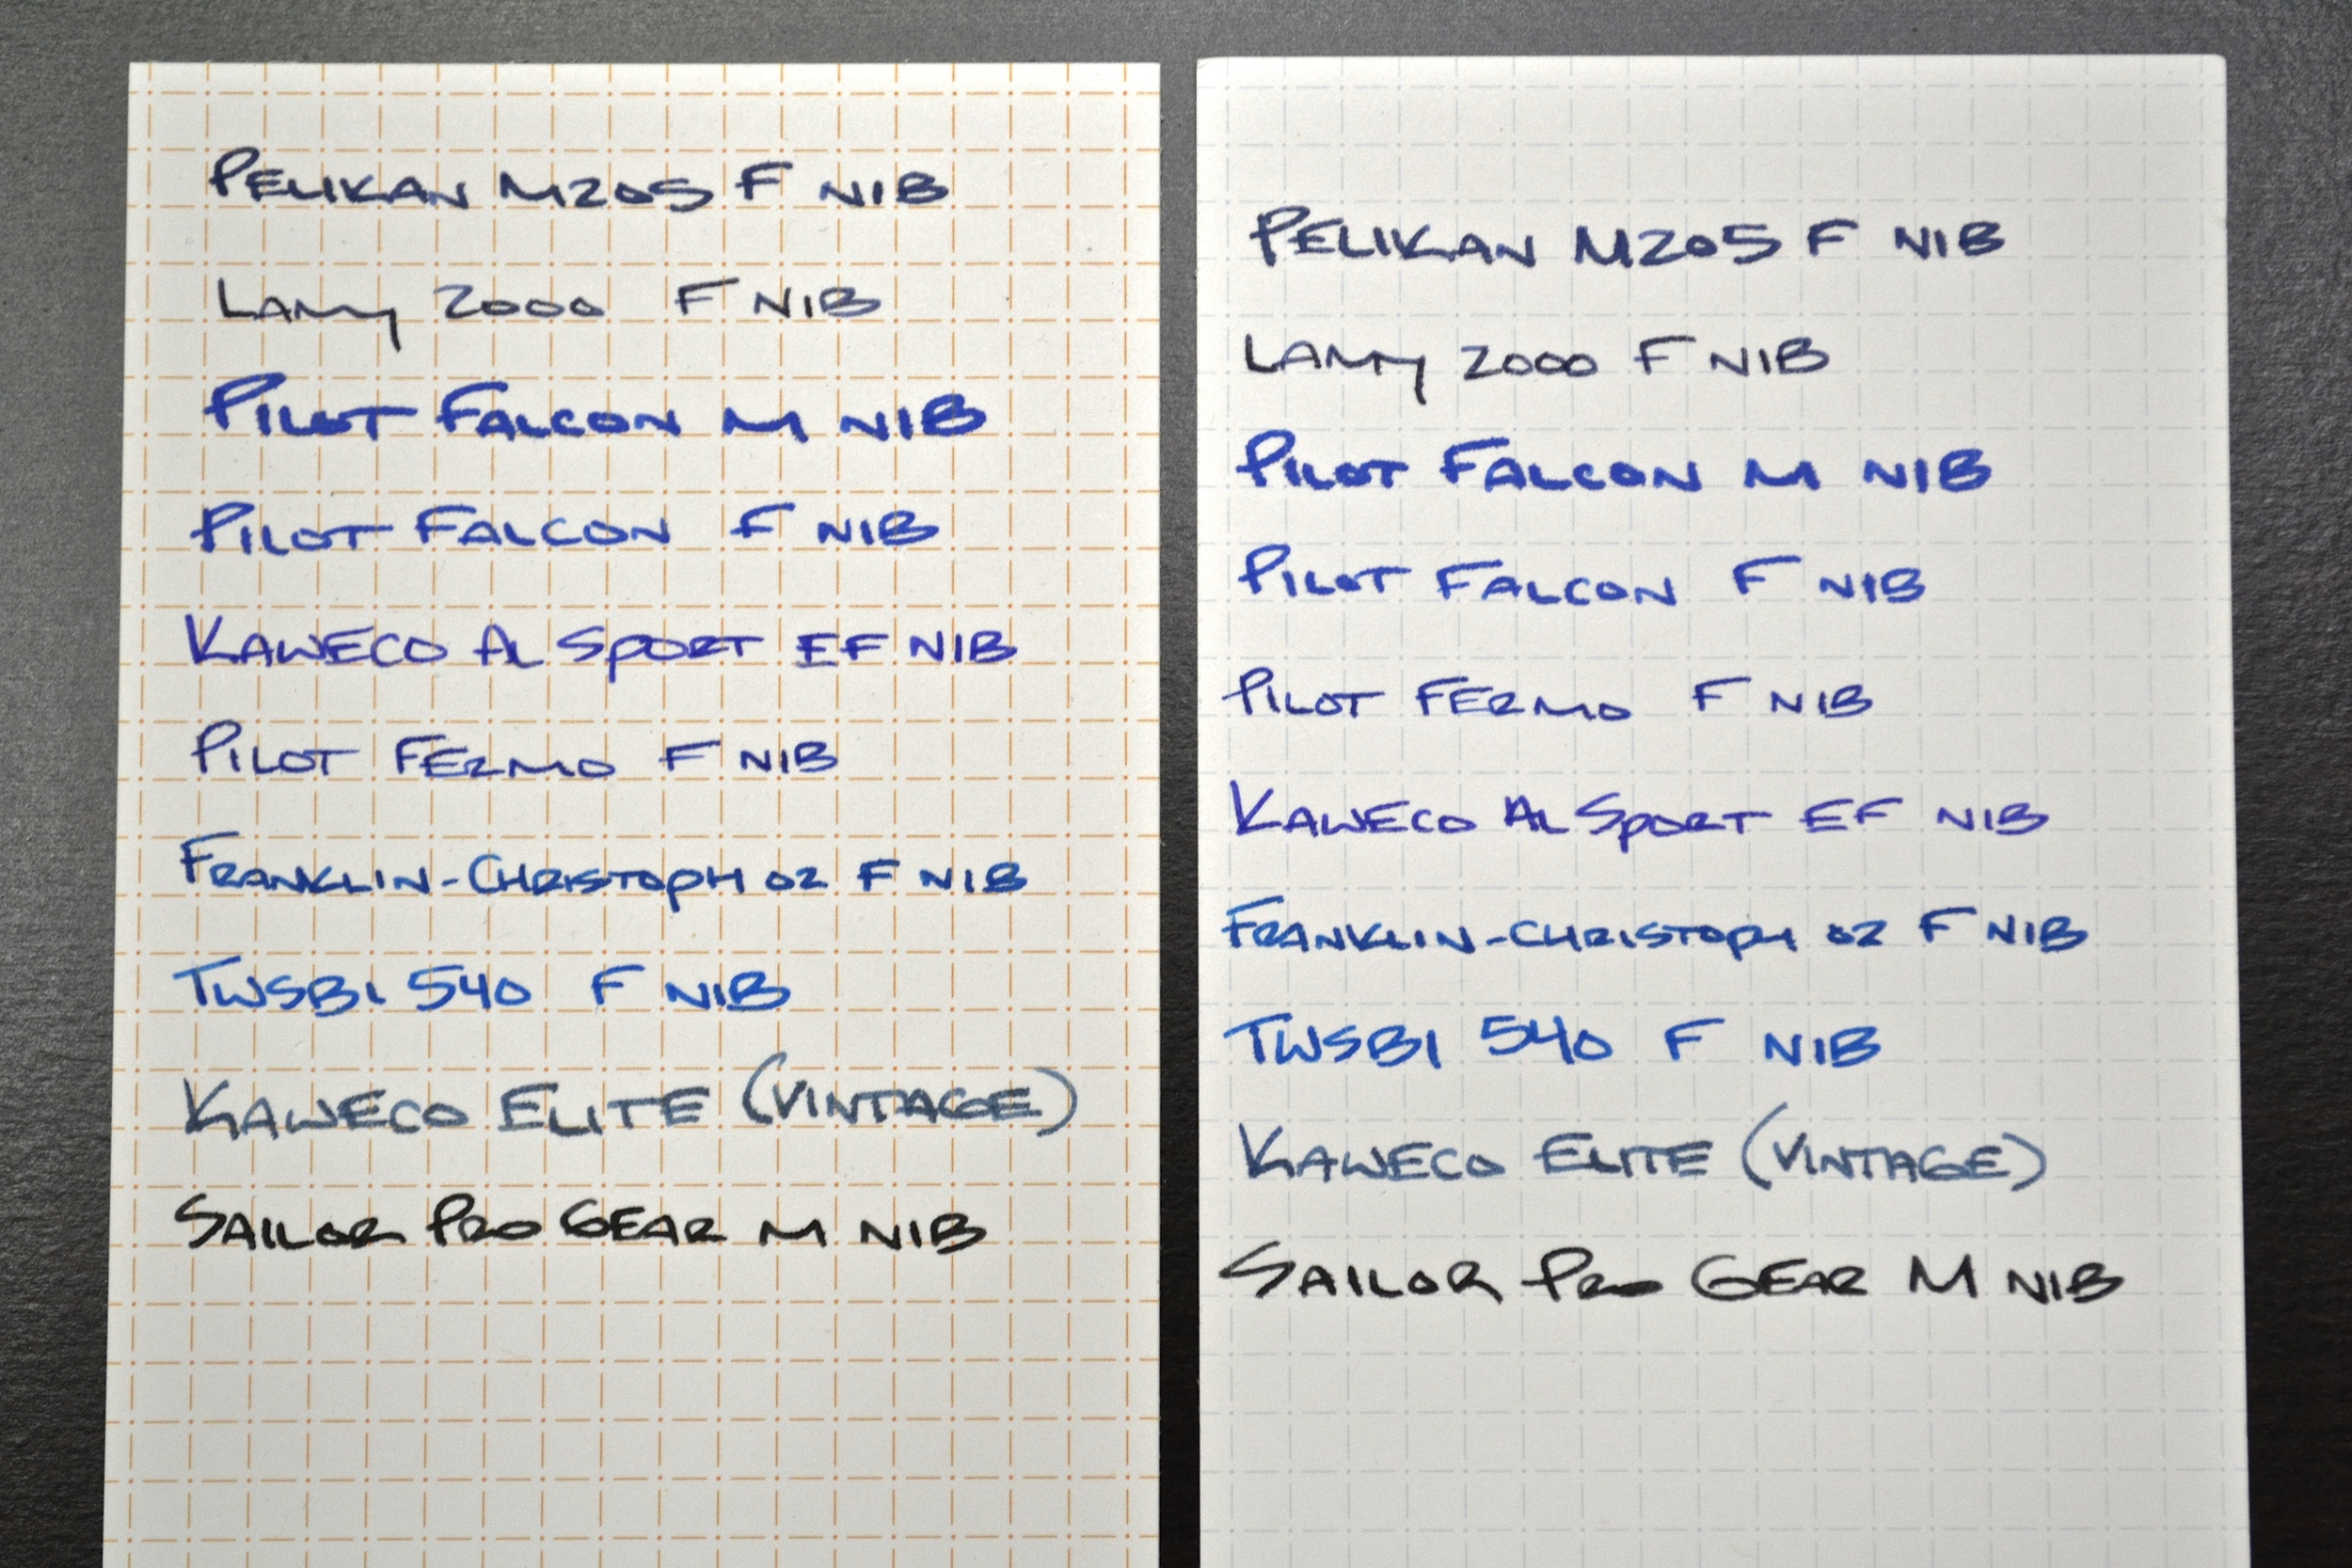 PELIKAN M205 F NIB
LAMY 2000 F NIB
PILOT FALCON M NIB
PILOT FALCON F NIB
KAWECO AL SPORT EF NIB
PILOT FERMO F NIB
FRANKLIN-CHRISTOPH 02 F NIB
TWSBI 540 F NIB
KAWECO ELITE (VINTAGE)
SAILOR PRO GEAR M NIB
PELIKAN M205 F NIB
LAMY 2000 F NIB
PILOT FALCON M NIB
PILOT FALCON F NIB
PILOT FERMO F NIB
KAWECO AL SPORT EF NIB
FRANKLIN-CHRISTOPH 02 F NIB
TWSBI 540 F NIB
KAWECO ELITE (VINTAGE)
SAILOR PRO GEAR M NIB